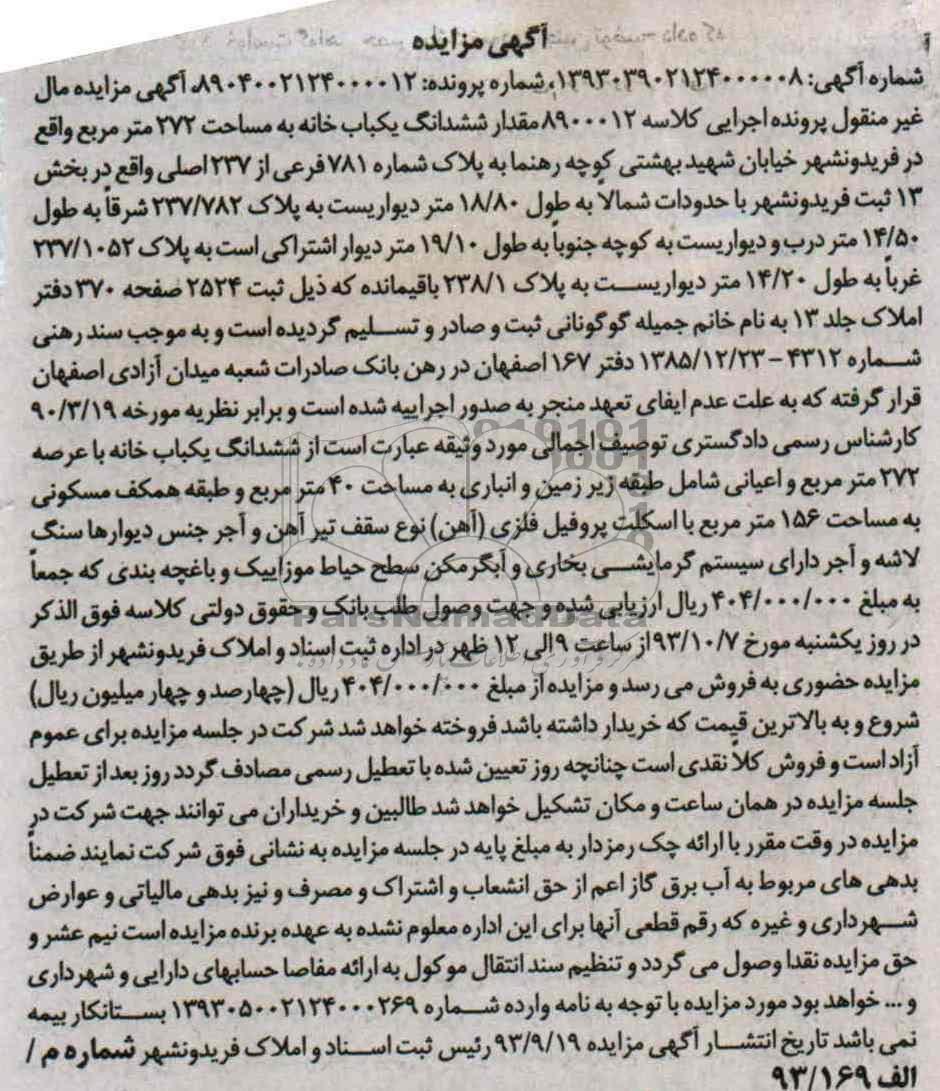 آگهی مزایده
شماره آگهی: ۱۳۹۳۰۳۹۰۲۱۲۴۰۰۰۰۰۸، شماره پرونده: ۸۹۰۴۰۰۲۱۲۴۰۰۰۰۱۲، آگهی مزایده مال
غیر منقول پرونده اجرایی کلاسه ۸۹۰۰۰۱۲ مقدار ششدانگ یکباب خانه به مساحت ۲۷۲ متر مربع واقع
در فریدونشهر خیابان شهید بهشتی کوچه رهنما به پلاک شماره ۷۸۱ فرعی از ۲۳۷ اصلی واقع در بخش
۱۳ ثبت فریدونشهر با حدودات شمالاً به طول ۱۸/۸۰ متر دیواریست به پلاک ۲۳۷/۷۸۲ شرقاً به طول
۱۴/۵۰ متر درب و دیواریست به کوچه جنوباً به طول ۱۹/۱۰ متر دیوار اشتراکی است به پلاک ۲۳۷/۱۰۵۲
غرباً به طول ۱۴/۲۰ متر دیواریست به پلاک ۲۳۸/۱ باقیمانده که ذیل ثبت ۲۵۲۴ صفحه ۳۷۰ دفتر
املاک جلد ۱۳ به نام خانم جمیله گوگونانی ثبت و صادر و تسلیم گردیده است و به موجب سند رهنی
شماره ۴۳۱۲ – ۱۳۸۵/۱۲/۲۳ دفتر ۱۶۷ اصفهان در رهن بانک صادرات شعبه میدان آزادی اصفهان
قرار گرفته که به علت عدم ایفای تعهد منجر به صدور اجراییه شده است و برابر نظریه مورخه ۹۰/۳/۱۹
کارشناس رسمی دادگستری توصیف اجمالی مورد وثیقه عبارت است از ششدانگ یکباب خانه با عرصه
۲۷۲ متر مربع و اعیانی شامل طبقه زیر زمین و انباری به مساحت ۴۰ متر مربع و طبقه همکف مسکونی
به مساحت ۱۵۶ متر مربع با اسکلت پروفیل فلزی (آهن) نوع سقف تیر آهن و آجر جنس دیوارها سنگ
لاشه و آجر دارای سیستم گرمایشی بخاری و آبگرمکن سطح حیاط موزاییک و باغچه بندی که جمعاً
به مبلغ ۴۰۴/۰۰۰/۰۰۰ ریال ارزیابی شده و جهت وصول طلب بانک و حقوق دولتی کلاسه فوق الذکر
در روز یکشنبه مورخ ۹۳/۱۰/۷ از ساعت ۹ الی ۱۲ ظهر در اداره ثبت اسناد و املاک فریدونشهر از طریق
مزایده حضوری به فروش می رسد و مزایده از مبلغ ۴۰۴/۰۰۰/۰۰۰ ریال (چهارصد و چهار میلیون ریال)
شروع و به بالاترین قیمت که خریدار داشته باشد فروخته خواهد شد شرکت در جلسه مزایده برای عموم
آزاد است و فروش کلاً نقدی است چنانچه روز تعیین شده با تعطیل رسمی مصادف گردد روز بعد از تعطیل
جلسه مزایده در همان ساعت و مکان تشکیل خواهد شد طالبین و خریداران می توانند جهت شرکت در
مزایده در وقت مقرر با ارائه چک رمزدار به مبلغ پایه در جلسه مزایده به نشانی فوق شرکت نمایند ضمناً
بدهی های مربوط به آب برق گاز اعم از حق انشعاب و اشتراک و مصرف و نیز بدهی مالیاتی و عوارض
شهرداری و غیره که رقم قطعی آنها برای این اداره معلوم نشده به عهده برنده مزایده است نیم عشر و
حق مزایده نقدا وصول می گردد و تنظیم سند انتقال موکول به ارائه مفاصا حسابهای دارایی و شهرداری
و ... خواهد بود مورد مزایده با توجه به نامه وارده شماره ۱۳۹۳۰۵۰۰۲۱۲۴۰۰۰۲۶۹ بستانکار بیمه
نمی باشد تاریخ انتشار آگهی مزایده ۹۳/۹/۱۹ رئیس ثبت اسناد و املاک فریدونشهر شماره م /
الف ۹۳/۱۶۹
ParsNamadData